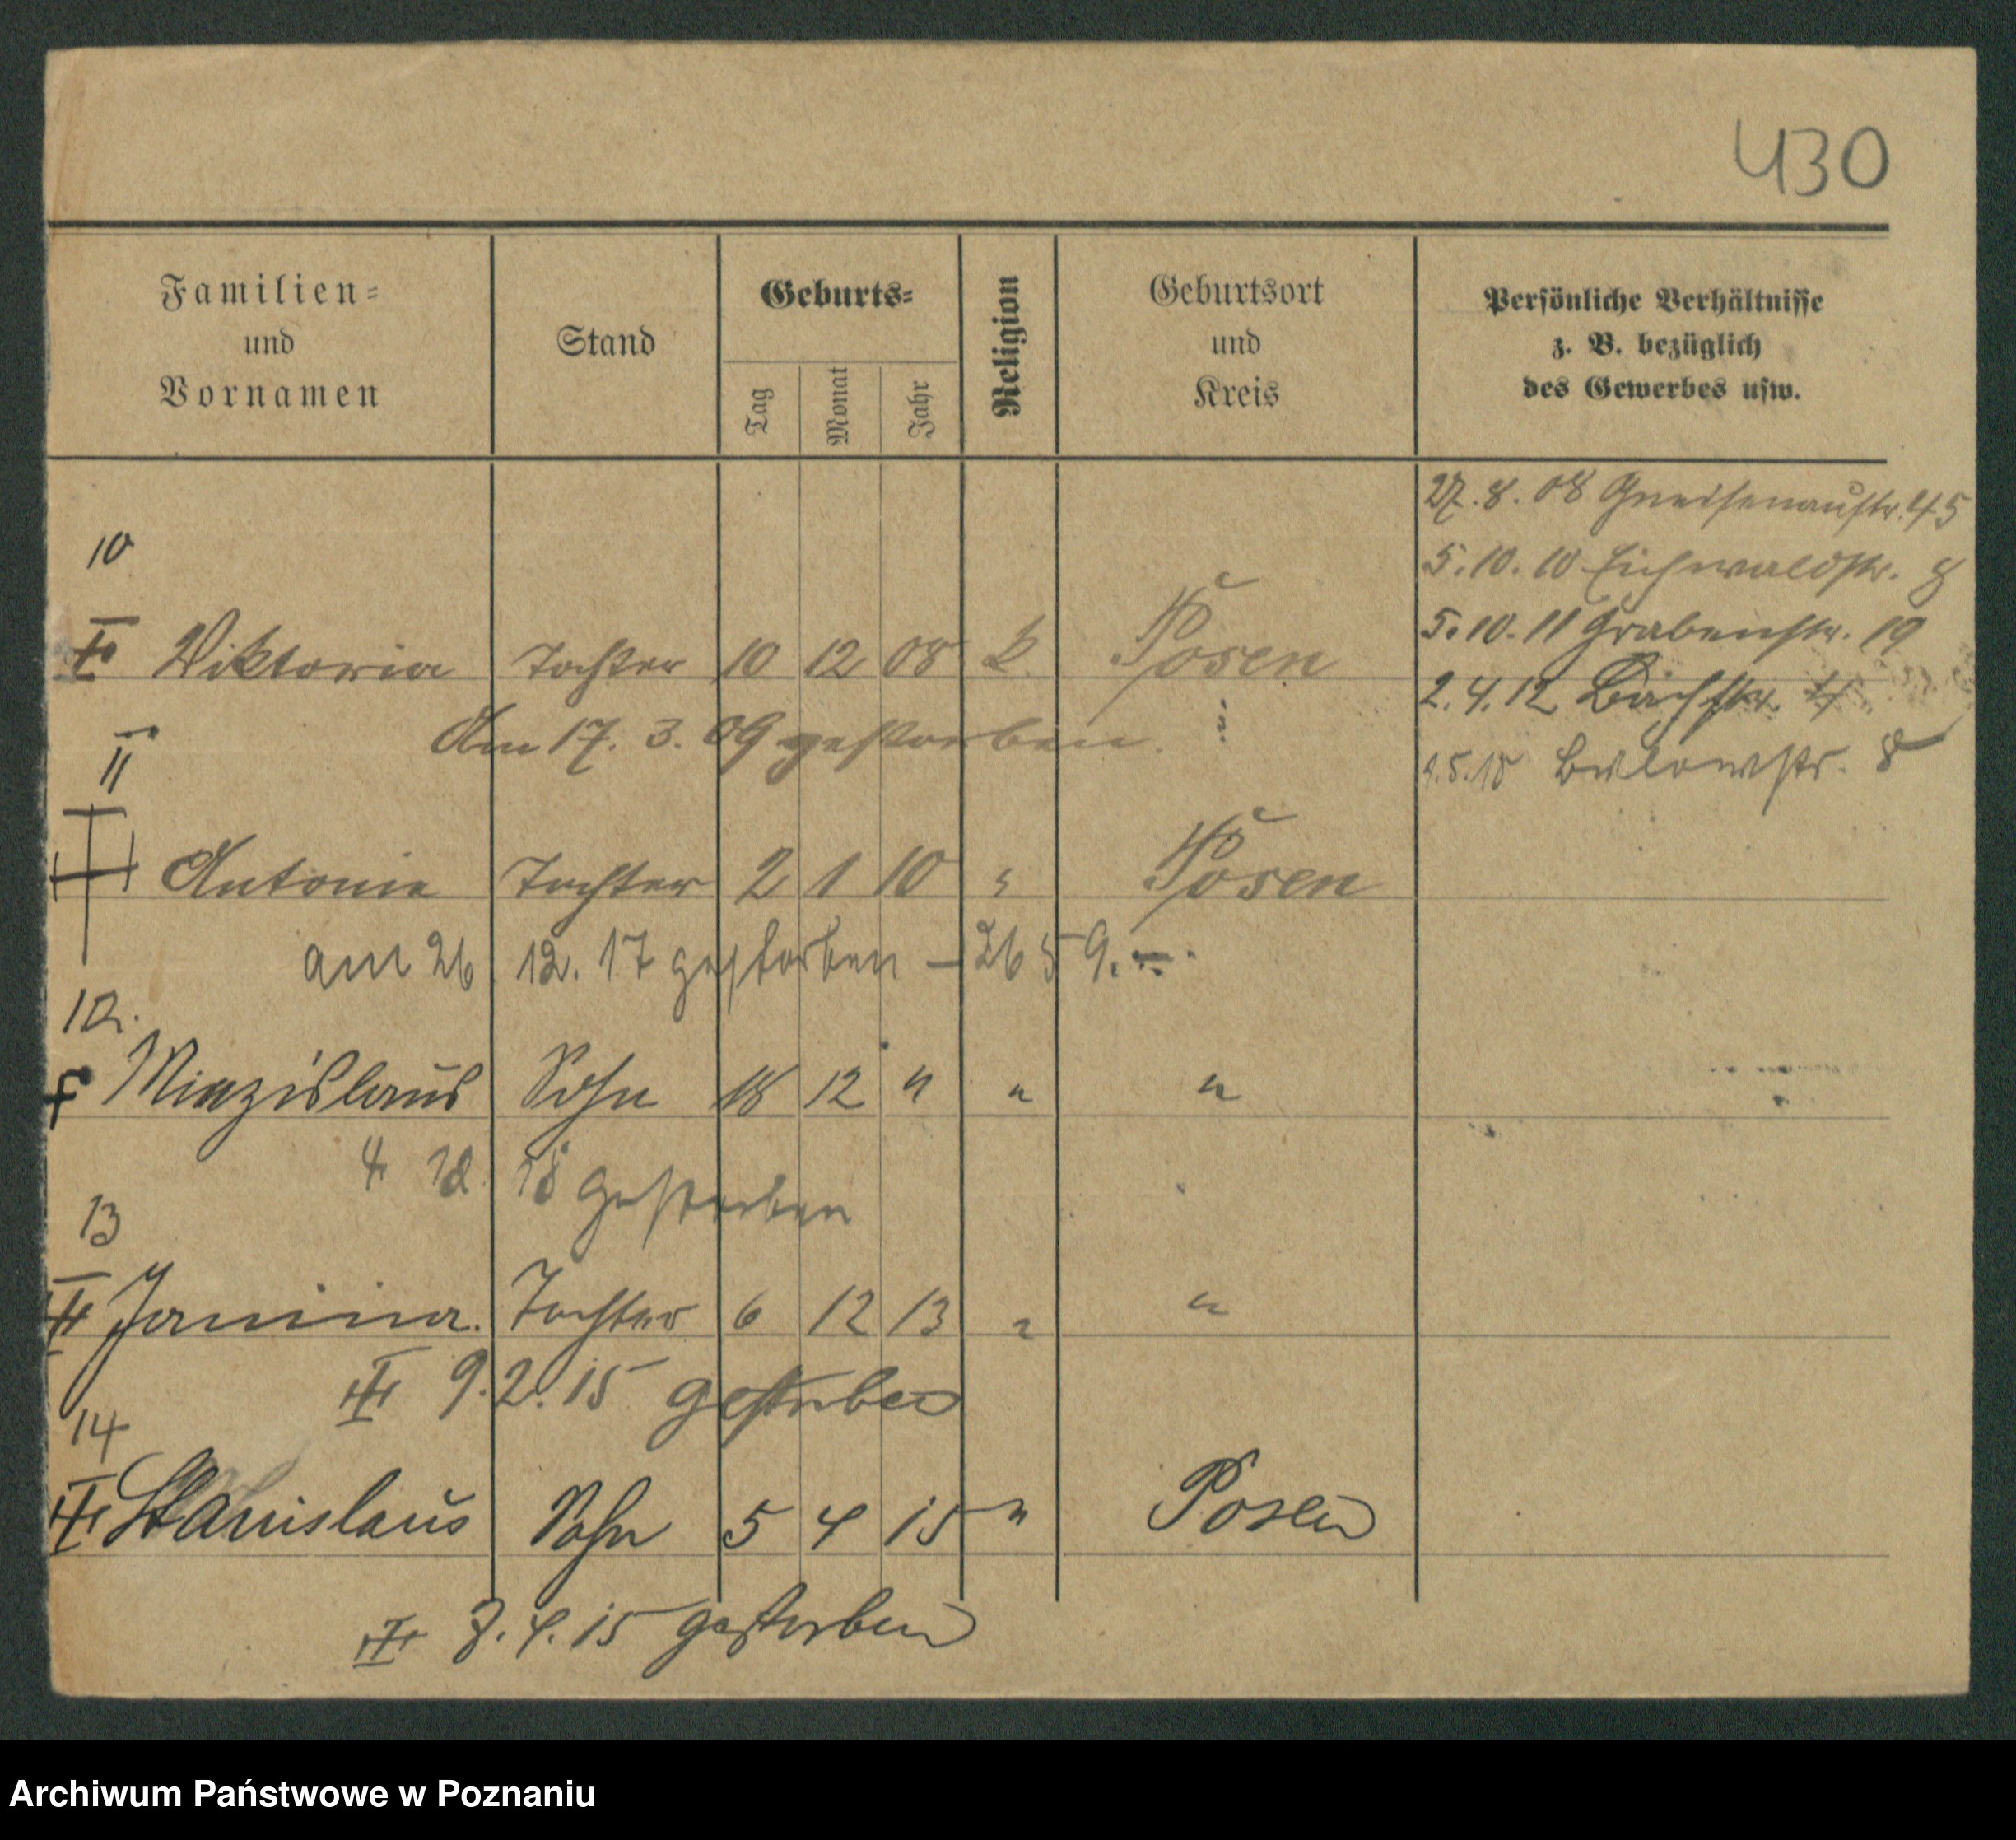 430
Familien=
und
Vornamen
Stand
Geburts=
Tag
Monat
Jahr
Religion
Geburtsort
und
Kreis
Persönliche Verhältnisse
z. B. bezüglich
des Gewerbes usw.
27.8.08 Gneisenaustr. 45
5.10.10 Eichwaldstr. 8
5.10.11 Grabenstr. 19
2.4.12 Bachstr. 4
1.5.18 Bülowstr. 8
10
Viktoria Tochter 10 12 08 k. Posen
Am 17. 3. 09 gestorben.
11
Antonie Tochter 2 1 10 " Posen
am 26. 12. 17 gestorben – 2659.
12.
† Miezislaus Sohn 18 12 " " "
4 12. 18 gestorben
13
Janina. Tochter 6 12 13 " "
9. 2. 15 gestorben
14
Stanislaus Sohn 5 4 15 " Posen
7. 4. 15 gestorben
Archiwum Państwowe w Poznaniu